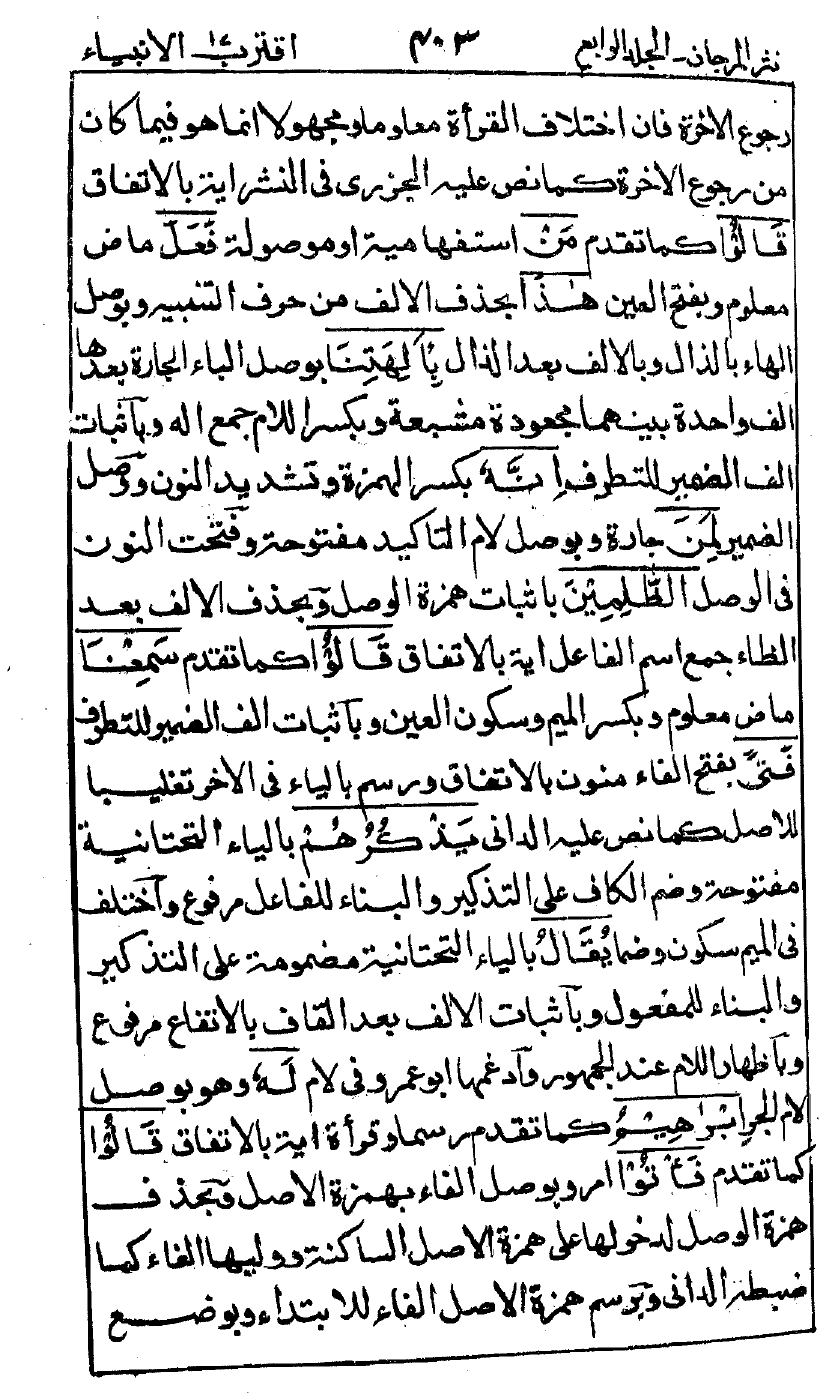 نثر المرجان - الجلد الرابع ٤٠٣ اقترب ١٧ الانبياء
رجوع الاخرة فان اختلاف القرأة معلوما ومجهولا انما هو فيما كان
من رجوع الاخرة كما نص عليه الجزرى فى النشر اية بالاتفاق
قَالُوْا كما تقدم مَنْ استفهامية او موصولة فَعَلَ ماض
معلوم وبفتح العين هٰذَا بحذف الالف من حرف التنبيه وبوصل
الهاء بالذال وبالالف بعد الذال بِاٰلِهَتِنَا بوصل الباء الجارة بعدها
الف واحدة بينهما مجعودة مشبعة وبكسر اللام جمع اله وبآثبات
الف الضمير للتطرف اِنَّهٗ بكسر الهمزة وتشديد النون ووصل
الضمير لَمِنَ جارة وبوصل لام التاكيد مفتوحة وفتحت النون
فى الوصل الظّٰلِمِيْنَ باثبات همزة الوصل وبحذف الالف بعد
الظاء جمع اسم الفاعل اية بالاتفاق قَالُوْا كما تقدم سَمِعْنَا
ماض معلوم وبكسر الميم وسكون العين وبآثبات الف الضمير للتطرف
فَتًى بفتح الفاء منون بالاتفاق ورسم بالياء فى الاخر تغليبا
للاصل كما نص عليه الدانى يَذْكُرُهُمْ بالياء التحتانية
مفتوحة وضم الكاف على التذكير والبناء للفاعل مرفوع وآختلف
فى الميم سكون وضما يُقَالُ بالياء التحتانية مضمومة على التذكير
والبناء للمفعول وبآثبات الالف بعد القاف بالاتفاع مرفوع
وبآظهار اللام عند الجمهور وآدغمها ابو عمرو فى لام لَهٗ وهو بوصل
لام الجر اِبْرٰهِيْمُ كما تقدم رسما وقرأة اية بالاتفاق قَالُوْا
كما تقدم فَأْتُوْا امر وبوصل الفاء بهمزة الاصل وبحذف
همزة الوصل لدخولها على همزة الاصل الساكنة ووليها الفاء كما
ضبطه الدانى وبرسم همزة الاصل الفاء للابتداء وبوضع